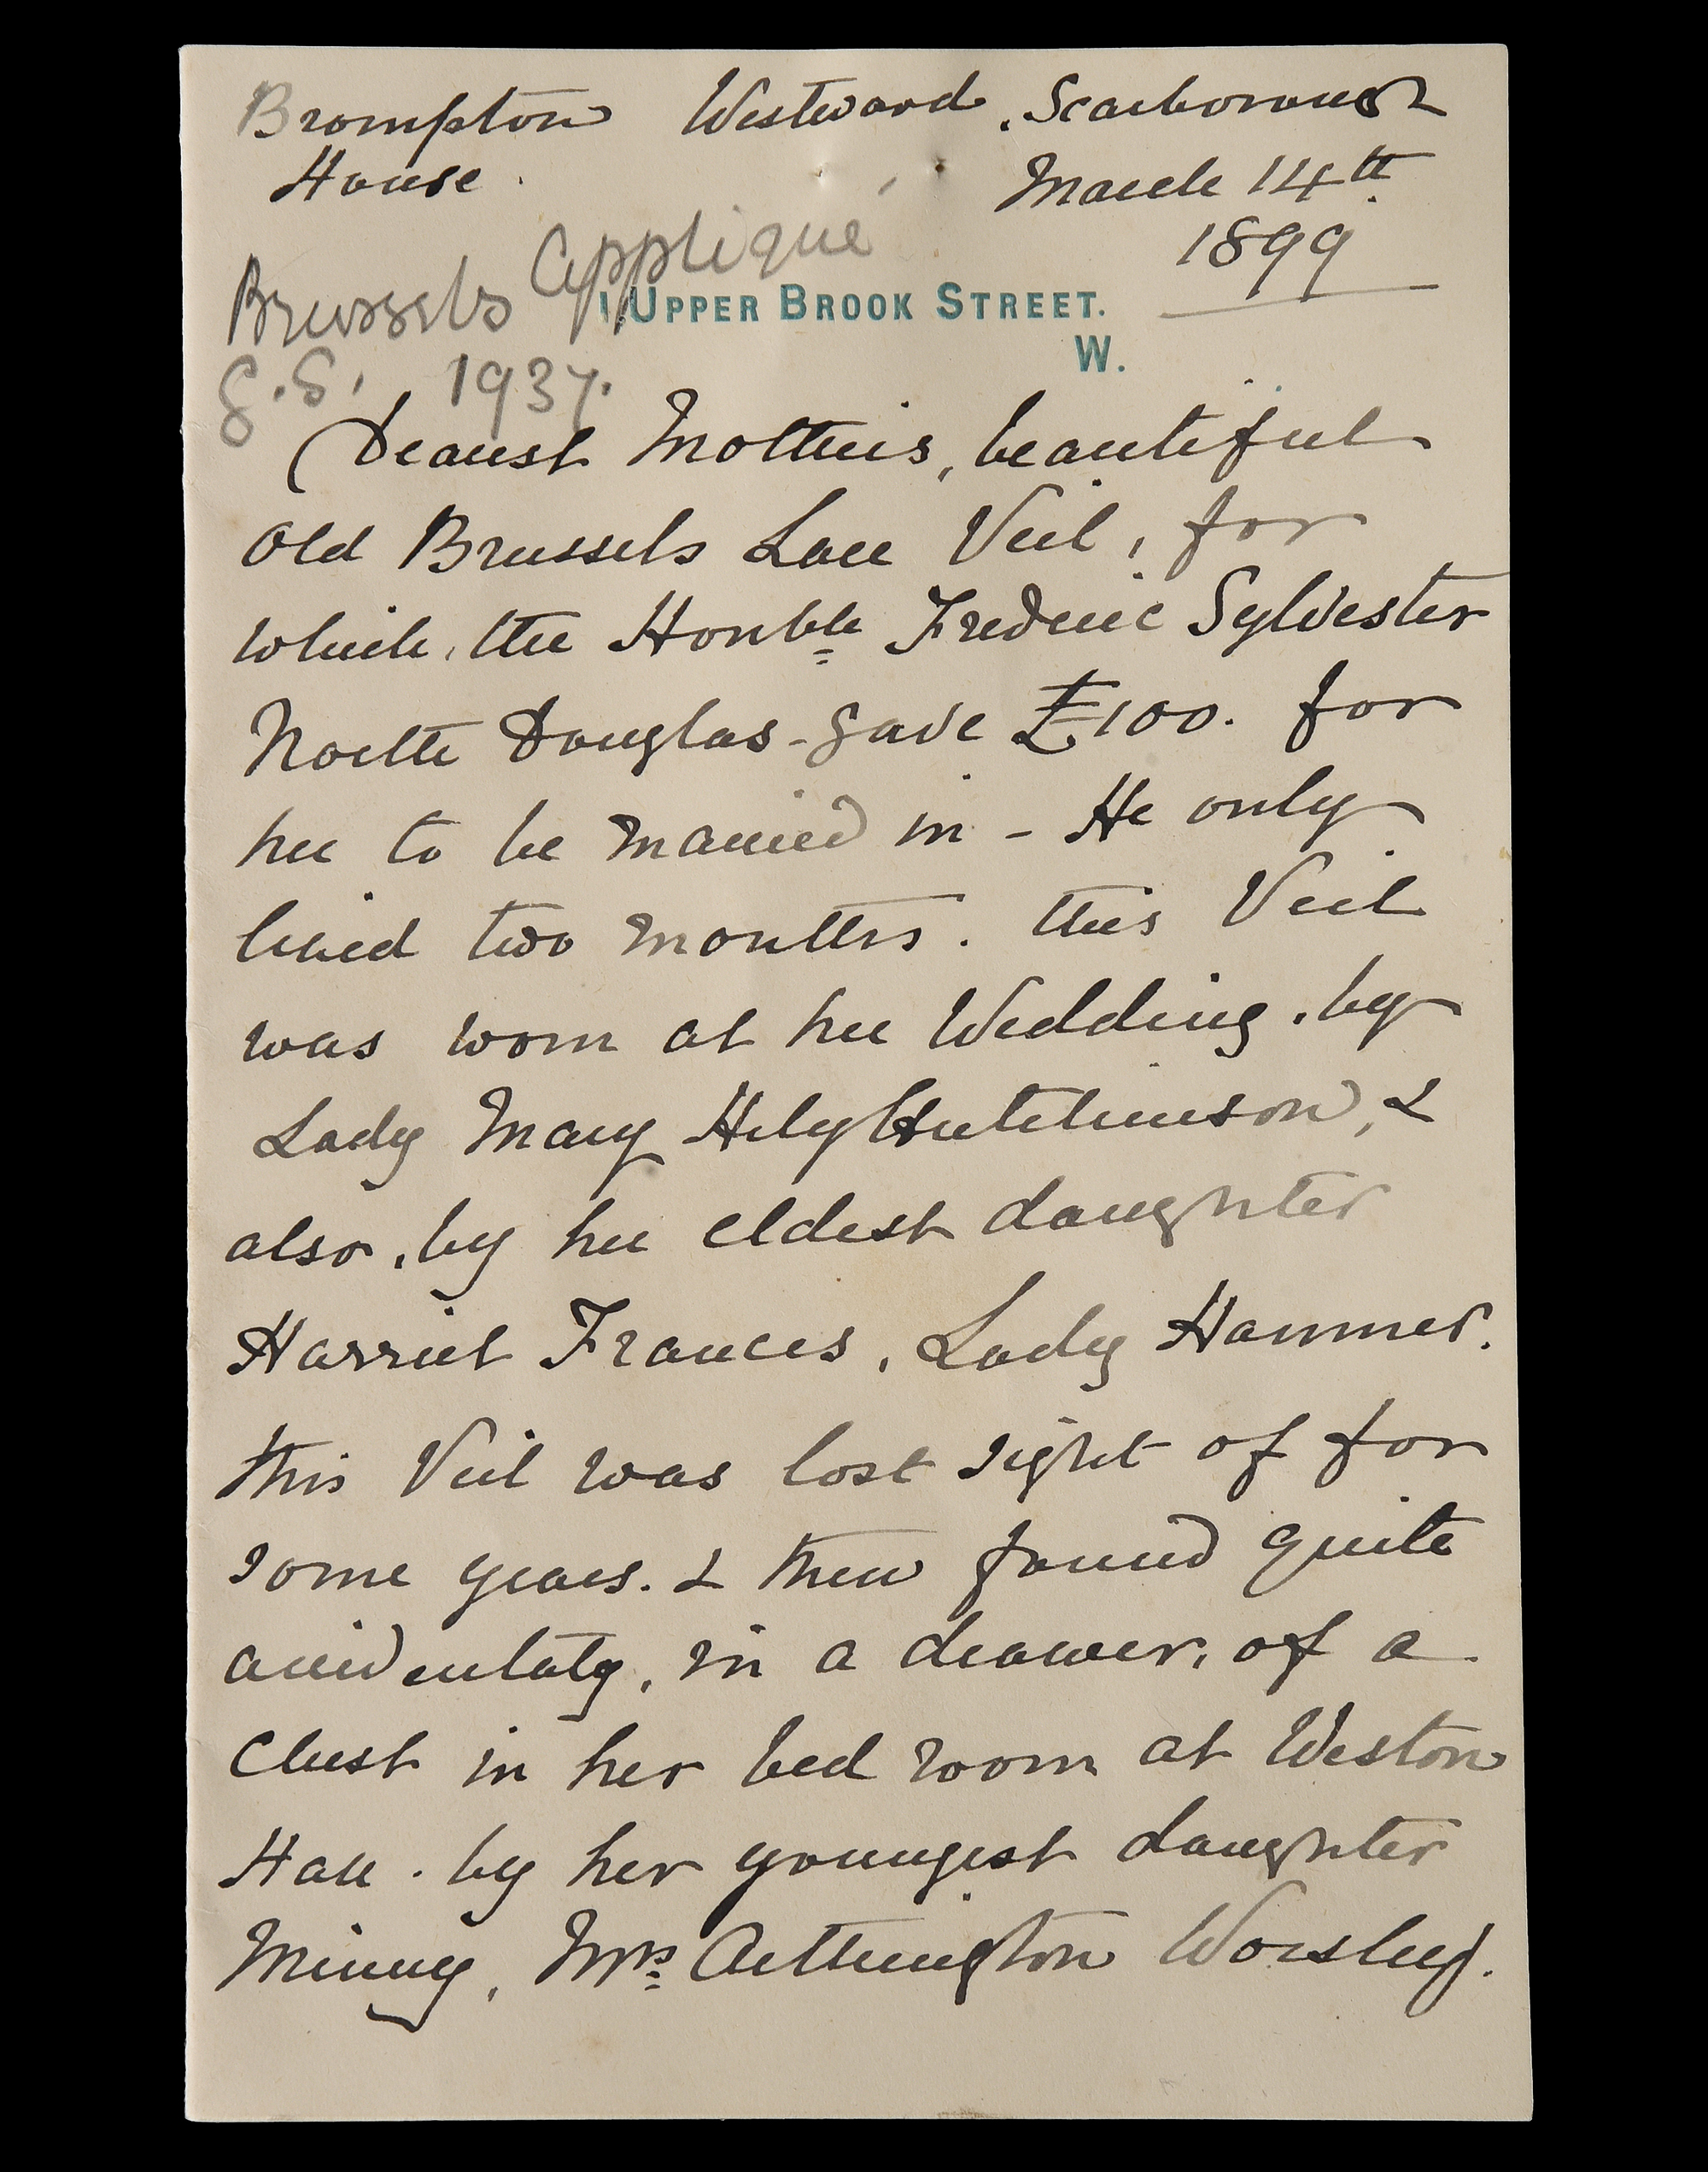 Brompton Westwood. Scarborough
House. March 14th
1899
Brussels Appliqué
1, UPPER BROOK STREET.
W.
S.S. 1937.
Dearest Mother's, beautiful
old Brussels Lace Veil, for
which, the Honble Frederic Sylvester
North Douglas - gave £100. for
her to be married in - He only
lived two months. this Veil
was worn at her Wedding, by
Lady Mary Hely Hutchinson, &
also, by her eldest daughter
Harriet Frances, Lady Hanmer.
this Veil was lost sight of for
some years. & then found quite
accidentaly, in a drawer, of a
Chest in her bed room at Weston
Hall. by her youngest daughter
Minny, Mrs Arthington Worsley.